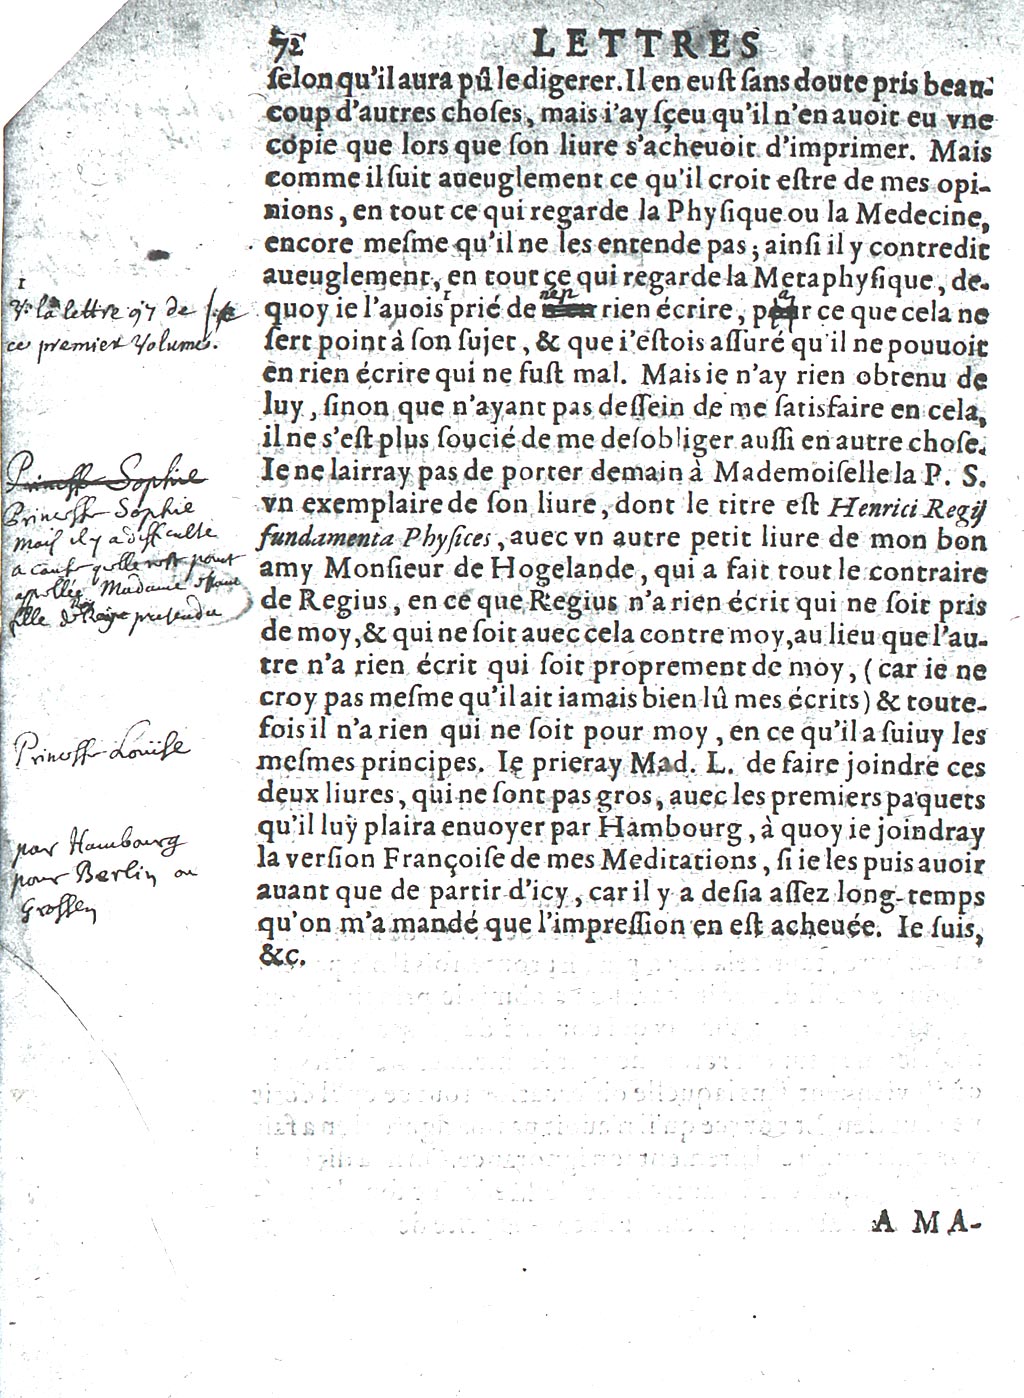 72 LETTRES
ſelon qu'il aura pû le digerer. Il en euſt ſans doute pris beau-
coup d'autres choſes, mais i'ay ſçeu qu'il n'en auoit eu vne
copie que lors que ſon liure s'acheuoit d'imprimer. Mais
comme il ſuit aueuglement ce qu'il croit eſtre de mes opi-
nions, en tout ce qui regarde la Phyſique ou la Medecine,
encore meſme qu'il ne les entende pas; ainſi il y contredit
aueuglement, en tout ce qui regarde la Metaphyſique, de-
quoy ie l'auois prié de n'en rien écrire, par ce que cela ne
ſert point à ſon ſujet, & que i'eſtois aſſuré qu'il ne pouuoit
en rien écrire qui ne fuſt mal. Mais ie n'ay rien obtenu de
luy, ſinon que n'ayant pas deſſein de me ſatisfaire en cela,
il ne s'eſt plus ſoucié de me deſobliger auſſi en autre choſe.
Ie ne lairray pas de porter demain à Mademoiſelle la P. S.
vn exemplaire de ſon liure, dont le titre eſt Henrici Regij
fundamenta Phyſices, auec vn autre petit liure de mon bon
amy Monſieur de Hogelande, qui a fait tout le contraire
de Regius, en ce que Regius n'a rien écrit qui ne ſoit pris
de moy, & qui ne ſoit auec cela contre moy, au lieu que l'au-
tre n'a rien écrit qui ſoit proprement de moy, (car ie ne
croy pas meſme qu'il ait iamais bien lû mes écrits) & toute-
fois il n'a rien qui ne ſoit pour moy, en ce qu'il a ſuiuy les
meſmes principes. Ie prieray Mad. L. de faire joindre ces
deux liures, qui ne ſont pas gros, auec les premiers paquets
qu'il luy plaira enuoyer par Hambourg, à quoy ie joindray
la verſion Françoiſe de mes Meditations, ſi ie les puis auoir
auant que de partir d'icy, car il y a deſia aſſez long-temps
qu'on m'a mandé que l'impreſſion en eſt acheuée. Ie ſuis,
&c.
A MA-
1
V. la lettre 97 de
ce premier Volume.
Princeſſe Sophie
Princeſſe Sophie
mais il y a difficulté
a cauſe qu'elle n'est point
apellée Madame étant
fille de Roy pretendu
Princeſſe Louiſe
par Hambourg
pour Berlin ou
Croſſen